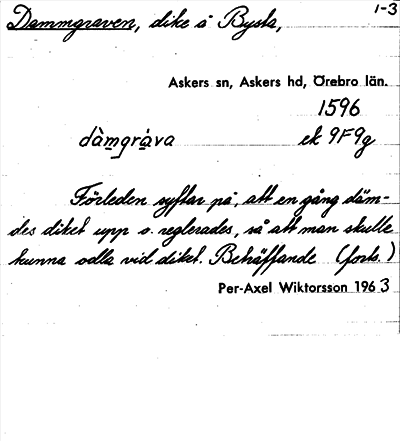 Dammgraven, dike å Bysta, 1-3
Askers sn, Askers hd, Örebro län.
1596
dàmgrá̱va ek 9F9g
Förleden syftar på, att en gång däm-
des diket upp o. reglerades, så att man skulle
kunna odla vid diket. Beträffande (forts.)
Per-Axel Wiktorsson 1963